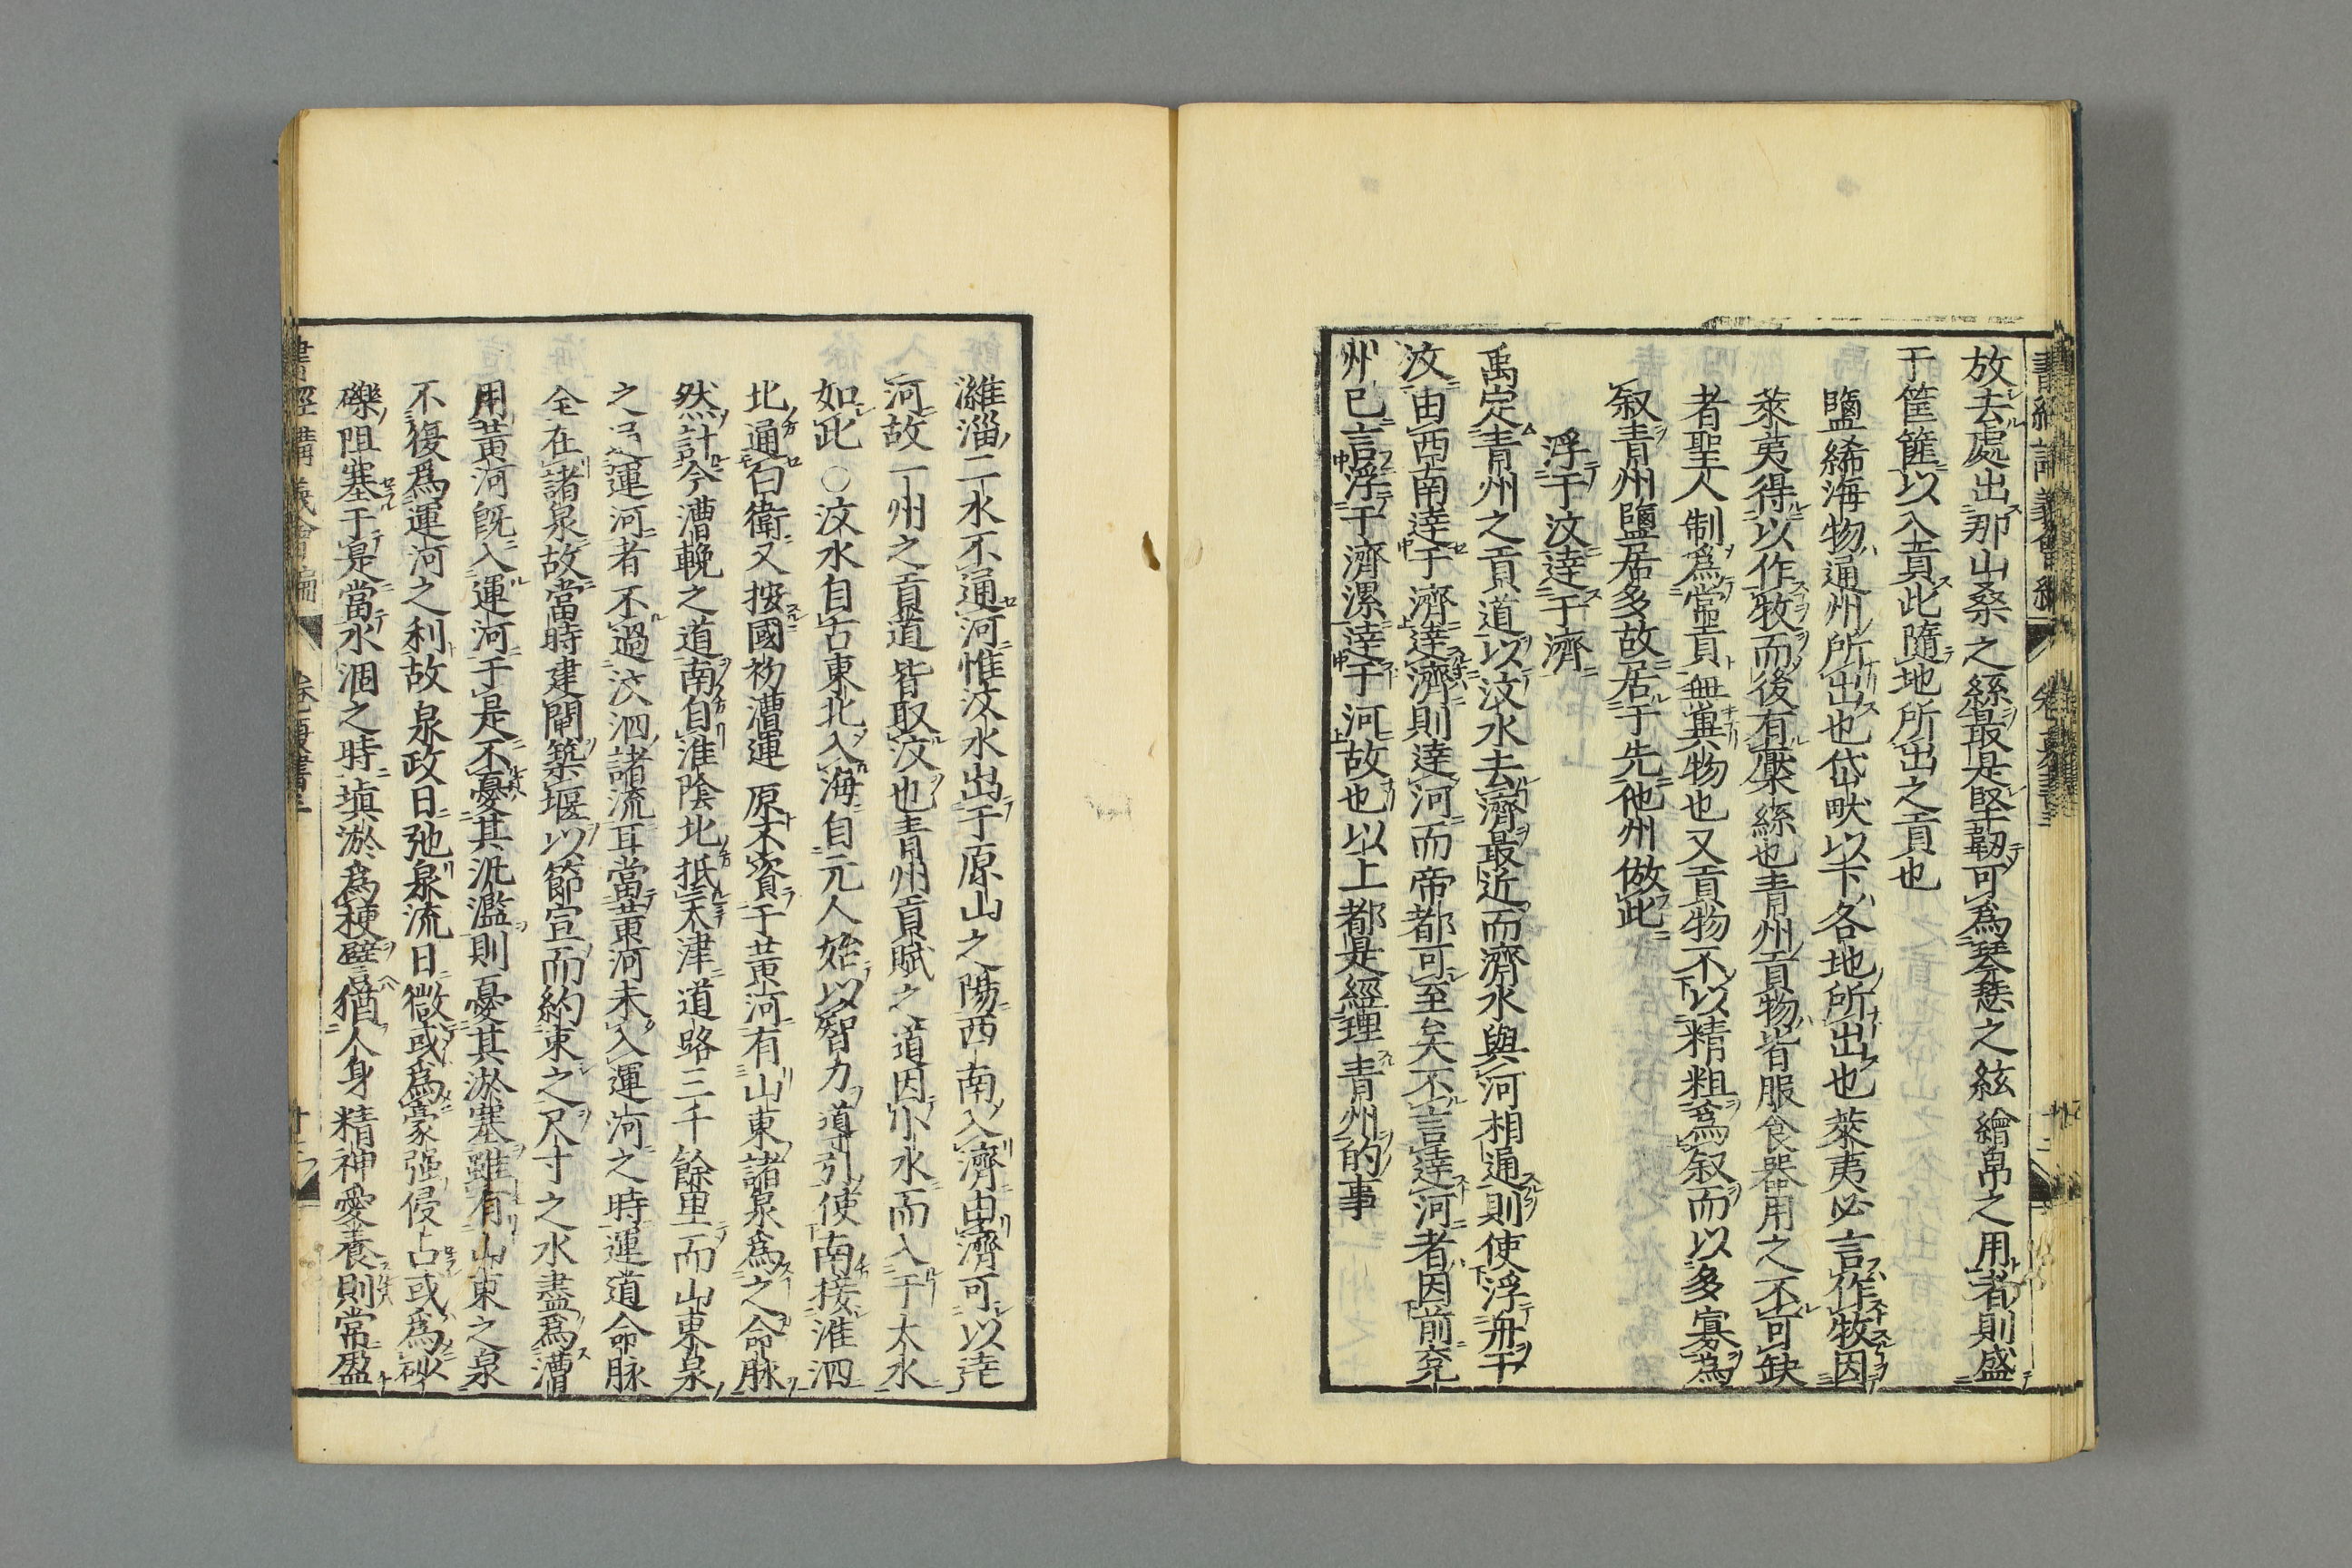 放去處出那山桑之絲最是堅韌可爲琴瑟之絃繒帛之用者則盛
于筐篚以入貢此隨地所出之貢也
鹽絺海物通州所出也岱畎以下各地所出也萊夷必言作牧因
萊夷得以作牧而後有檿絲也青州貢物皆服食器用之不可缺
者聖人制爲常貢無異物也又貢物不以精粗爲叙而以多寡為
叙青州鹽居多故居于先他州倣此
浮于汶達于濟
禹定青州之貢道以汶水去濟最近而濟水與河相通則使浮舟于
汶由西南達于濟達濟則達河而帝都可至矣不言達河者因前兖
州已言浮于濟漯達于河故也以上都是經理青州的事
濰淄二水不通河惟汶水出于原山之陽西南入濟由濟可以達
河故一州之貢道皆取汶也青州貢賦之道因小水而入于大水
如此○汶水自古東北入海自元人始以智力導引使南接淮泗
北通白衛又按國初漕運原不資于黄河有山東諸泉爲之命脉
然計今漕輓之道南自淮陰北抵天津道路三千餘里而山東泉
之運河者不過汶泗諸流耳當黄河未入運河之時運道命脉
全在諸泉故當時建閘築堰以節宣而約束之尺寸之水盡爲漕
用黄河旣入運河于是不憂其汎濫則憂其淤塞雖有山東之泉
不復爲運河之利故泉政日弛泉流日微或爲豪强侵占或爲砂
礫阻塞于是當水涸之時塡淤爲梗譬猶人身精神愛養則常盈
書經講義會編　卷二夏書三　十二